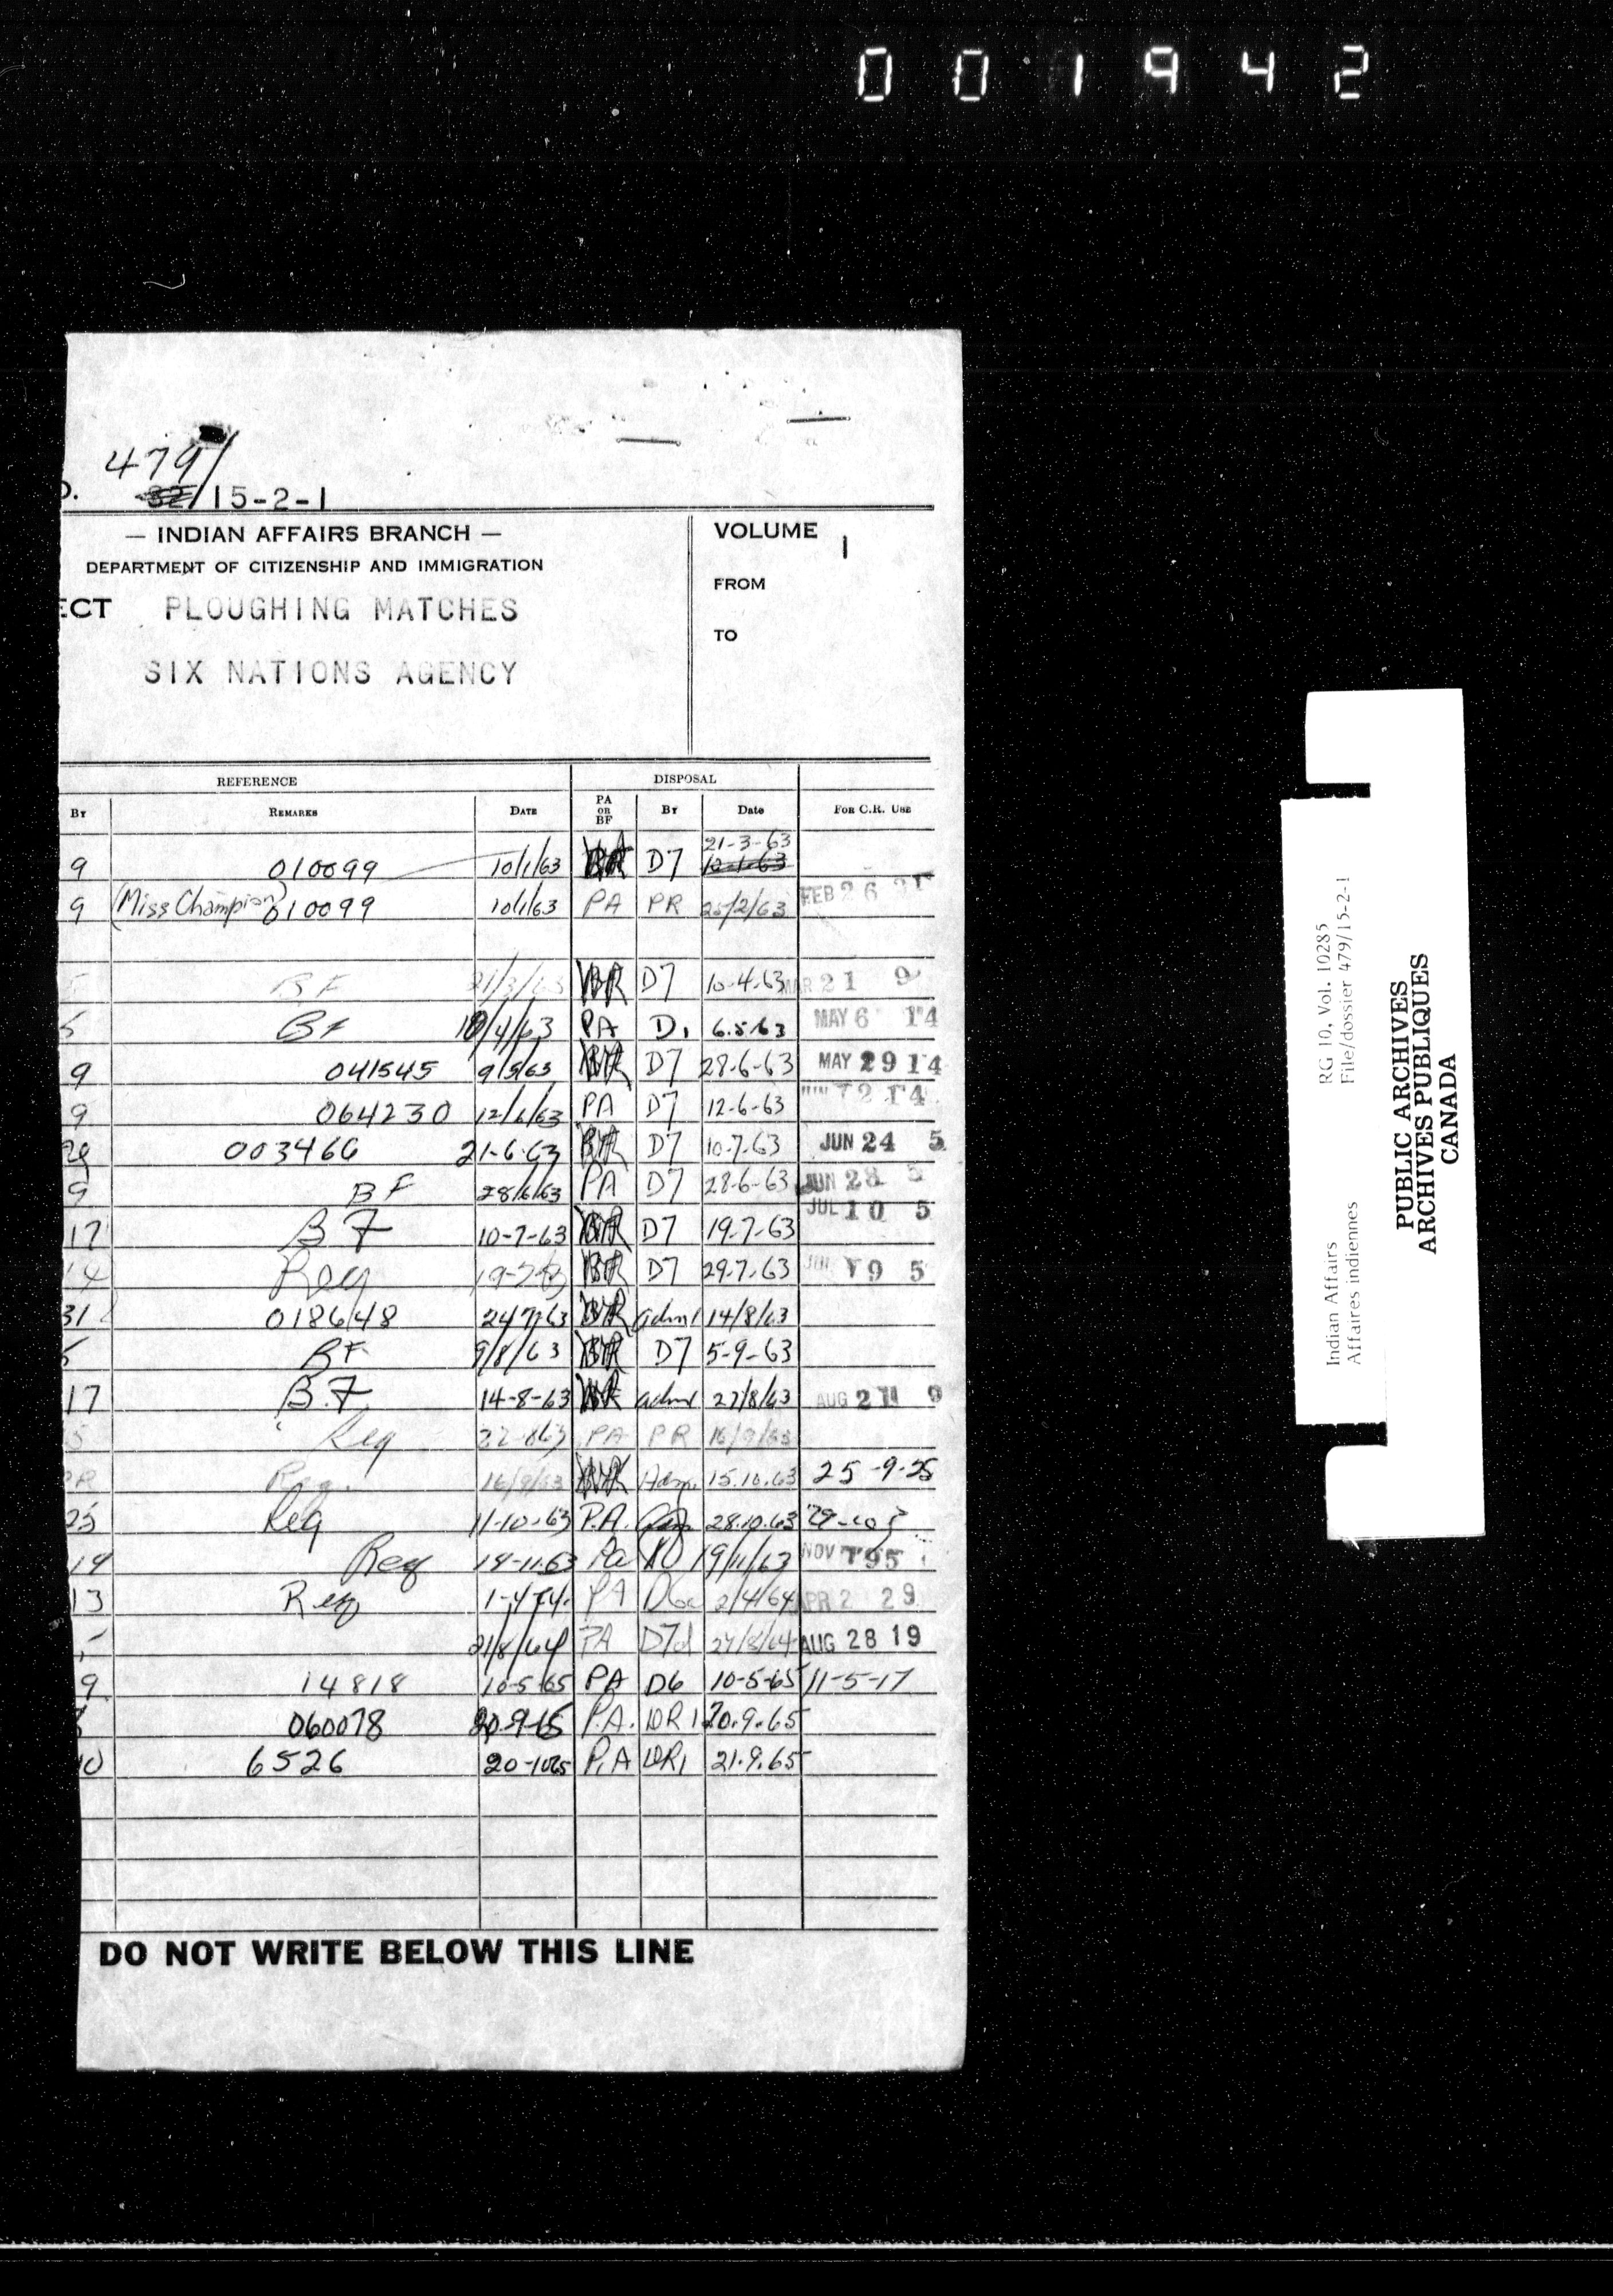 001942
479/
32/15-2-1
— INDIAN AFFAIRS BRANCH —
DEPARTMENT OF CITIZENSHIP AND IMMIGRATION
ECT PLOUGHING MATCHES
SIX NATIONS AGENCY
VOLUME 1
FROM
TO
REFERENCE DISPOSAL
BY REMARKS DATE PA OR BF BY Date FOR C.R. USE
21-3-63
9 010099 10/1/63 D7 10-1-63
9 (Miss Champion) 010099 10/1/63 PA PR 25/2/63 FEB 26 21
BF 21/3/63 D7 10-4-63 MAR 21 9
5 BF 10/4/63 PA D1 6.5.63 MAY 6 14
9 041545 9/5/63 D7 28-6-63 MAY 29 14
9 064230 12/6/63 PA D7 12-6-63 14
29 003466 21-6-63 D7 10.7.63 JUN 24 5
9 BF 28/6/63 PA D7 28-6-63 JUN 28 5
17 BF 10-7-63 D7 19.7-63 JUL 10 5
14 Req 19-7-63 D7 29.7.63 JUL 19 5
31 0186148 24/7/63 adm 14/8/63
5 BF 9/8/63 D7 5-9-63
17 B.F 14-8-63 adm 27/8/63 AUG 21 9
5 Req 22-8-63 PA PR 16/9/63
PR Req. 16/9/63 Adm. 15.10.63 25-9-25
25 Req 11-10-63 P.A. 28.10.63
14 Req 14-11-63 Pa 19/11/63 NOV 19 5
13 Req 1-4-64 PA 2/4/64 APR 2 29
21/8/64 PA D7d 27/8/64 AUG 28 19
9 14818 10-5-65 PA D6 10-5-65 11-5-17
060078 20-9-65 P.A. DR1 20.9.65
10 6526 20-10-65 P.A DR1 21.9.65
DO NOT WRITE BELOW THIS LINE
Indian Affairs RG 10, Vol. 10285
Affaires indiennes File/dossier 479/15-2-1
PUBLIC ARCHIVES
ARCHIVES PUBLIQUES
CANADA